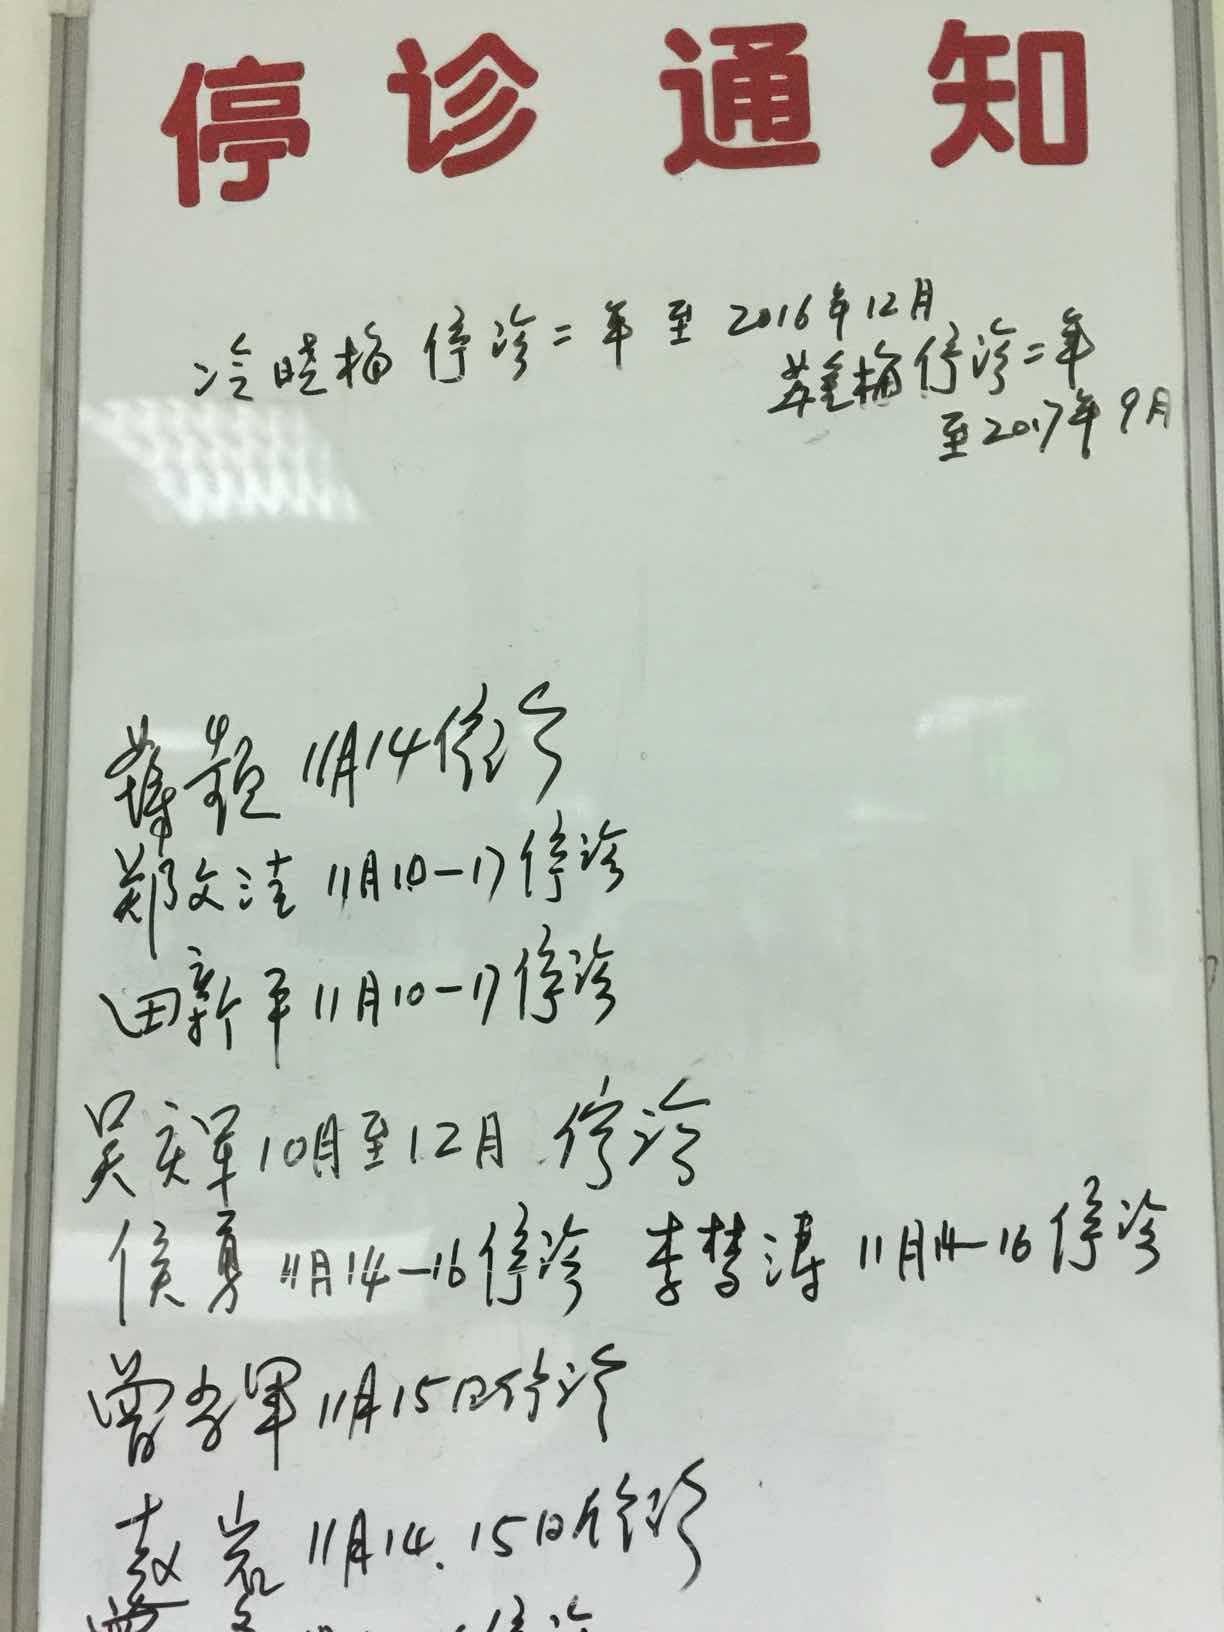 停诊通知
冷晓梅 停诊二年至2016年12月
梅停诊二年
至2017年9月
薛颖 11月14停诊
郑文洁 11月10-17停诊
田新平 11月10-17停诊
吴庆军 10月至12月 停诊
侯勇 11月14-16停诊 李梦涛 11月14-16停诊
曾学军 11月15日停诊
赵岩 11月14.15日停诊
停诊